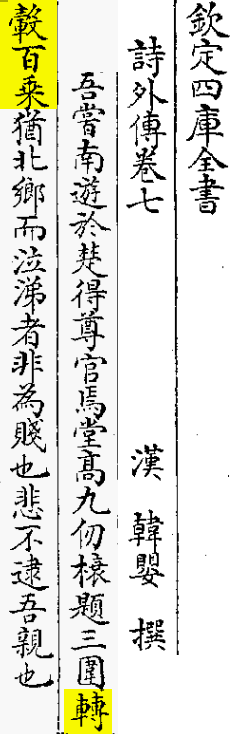 欽定四庫全書
詩外傳卷七 漢 韓嬰 撰
吾嘗南遊於楚得尊官焉堂髙九仞榱題三圍轉
轂百乗猶北鄉而泣涕者非為賤也悲不逮吾親也